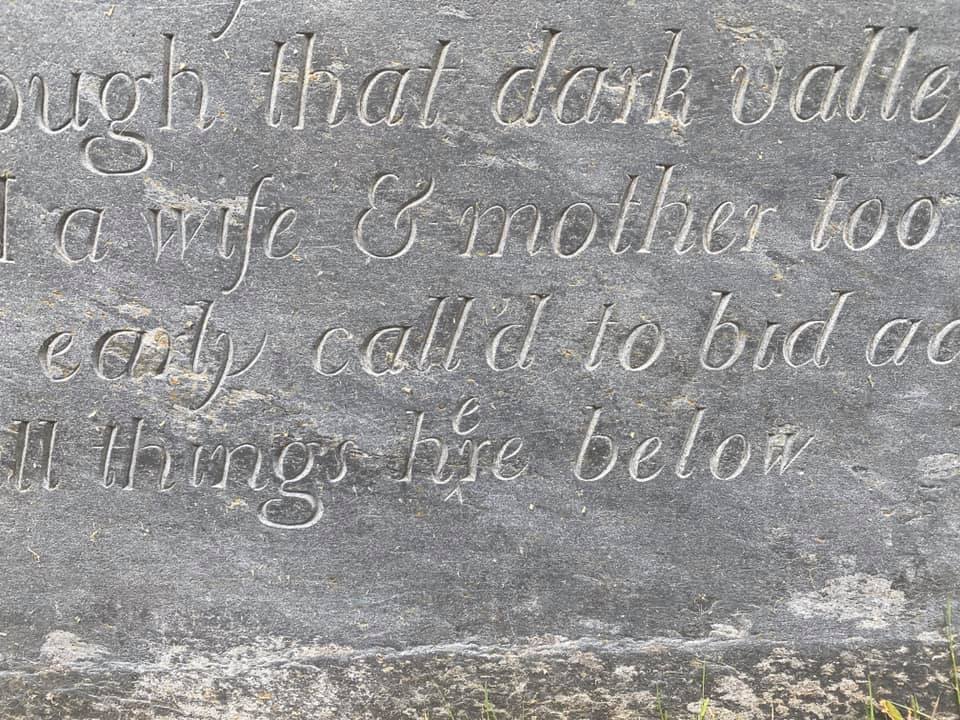 ough that dark valley
a wife & mother too
early call'd to bid ad
ll things here below